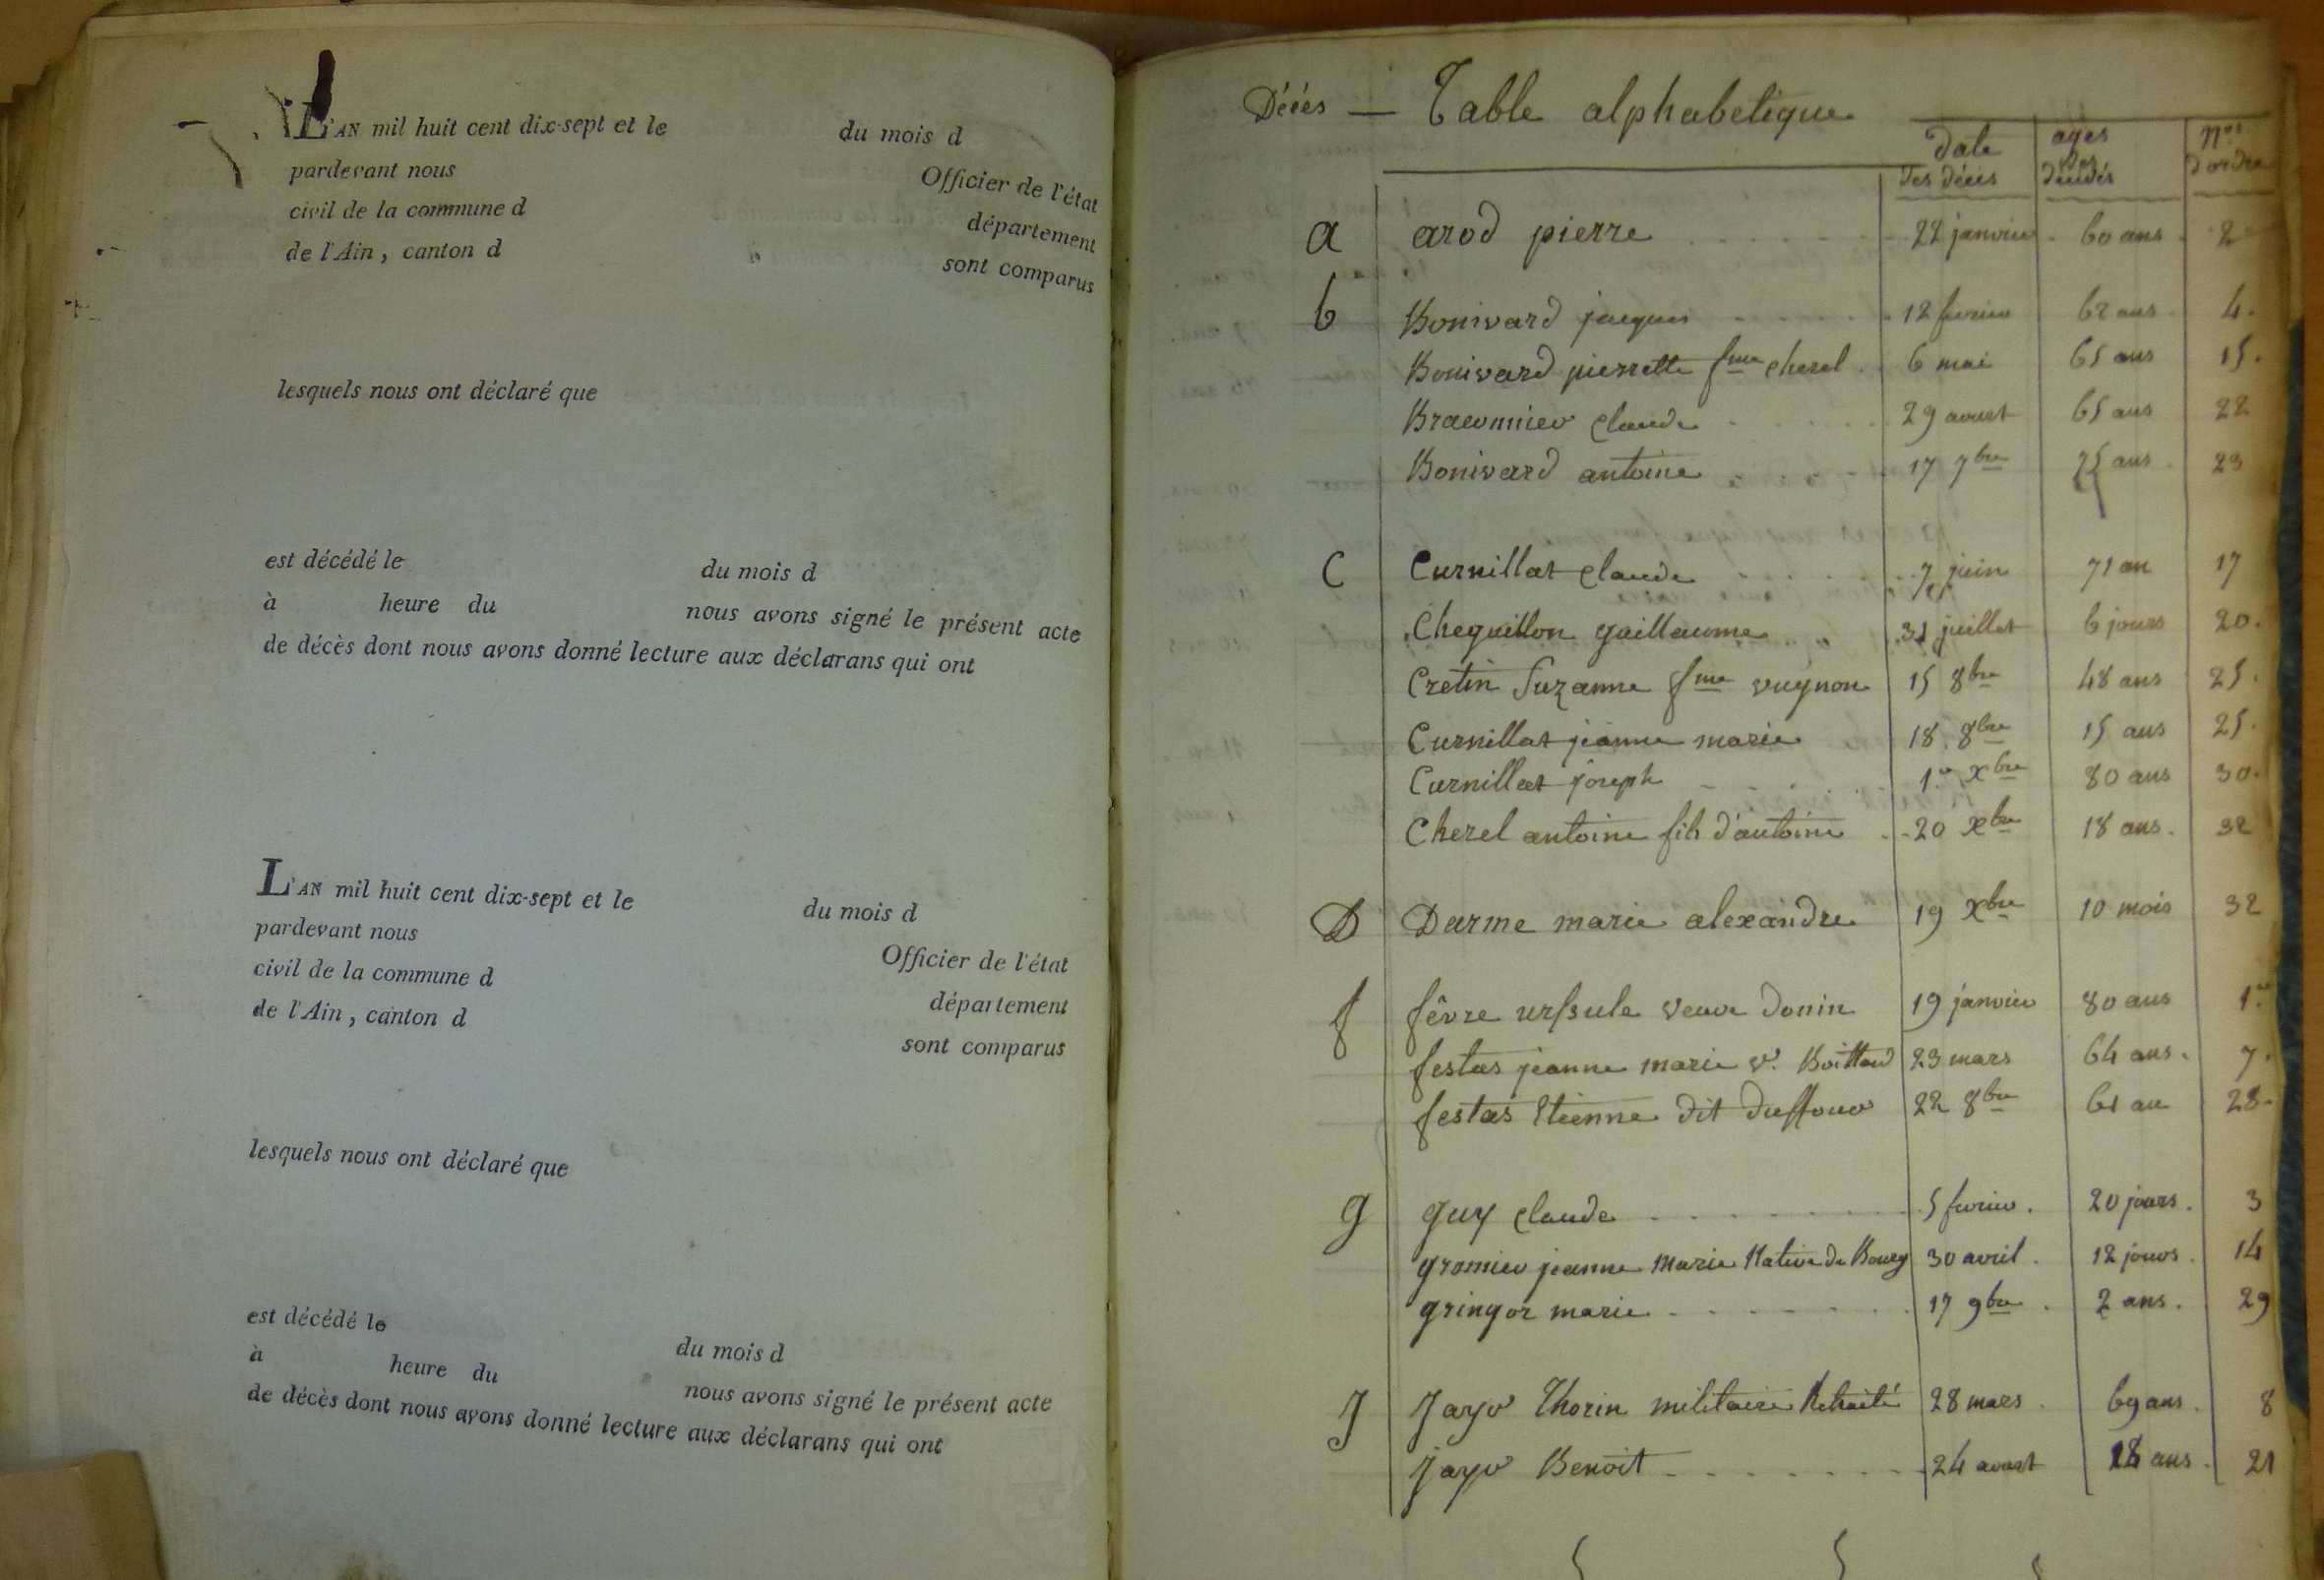 L'AN mil huit cent dix-sept et le du mois d
pardevant nous Officier de l'état
civil de la commune d département
de l'Ain, canton d sont comparus
lesquels nous ont déclaré que
est décédé le du mois d
à heure du nous avons signé le présent acte
de décès dont nous avons donné lecture aux déclarans qui ont
L'AN mil huit cent dix-sept et le du mois d
pardevant nous Officier de l'état
civil de la commune d département
de l'Ain, canton d sont comparus
lesquels nous ont déclaré que
est décédé le du mois d
à heure du nous avons signé le présent acte
de décès dont nous avons donné lecture aux déclarans qui ont
Décés — Table alphabetique
date des décés ages des décédés Nos d'ordre
a arod pierre 22 janvier 60 ans 2
b Bonivard jacques 12 fevrier 62 ans 4.
Bonivard pierrette fme cherel 6 mai 65 ans 15.
claude 29 aoust 65 ans 22
Bonivard antoine 17 7bre 25 ans 23
C Curnillat claude 7 juin 71 an 17
Cheguillon guillaume 31 juillet 6 jours 20.
Cretin Suzanne fme vugnon 15 8bre 48 ans 25.
Curnillat jeanne marie 18 8bre 15 ans 25.
Curnillat joseph 1er Xbre 80 ans 30.
Cherel antoine fils d'antoine 20 Xbre 18 ans. 32
D Darme marie alexandre 19 Xbre 10 mois 32
f fêvre ursule veuve Donin 19 janvier 80 ans 1er
festas jeanne marie ve. 23 mars 64 ans. 7.
festas Etienne dit duffour 22 8bre 61 an 28.
g guy claude 5 fevrier. 20 jours. 3
gromier jeanne Marie Native de Bourg 30 avril. 12 jours. 14
gringoz marie 17 9bre. 2 ans. 29
J Jayr Thorin militaire Retraité 28 mars 69 ans. 8
Jayr Benoit 24 aoust 18 ans. 21